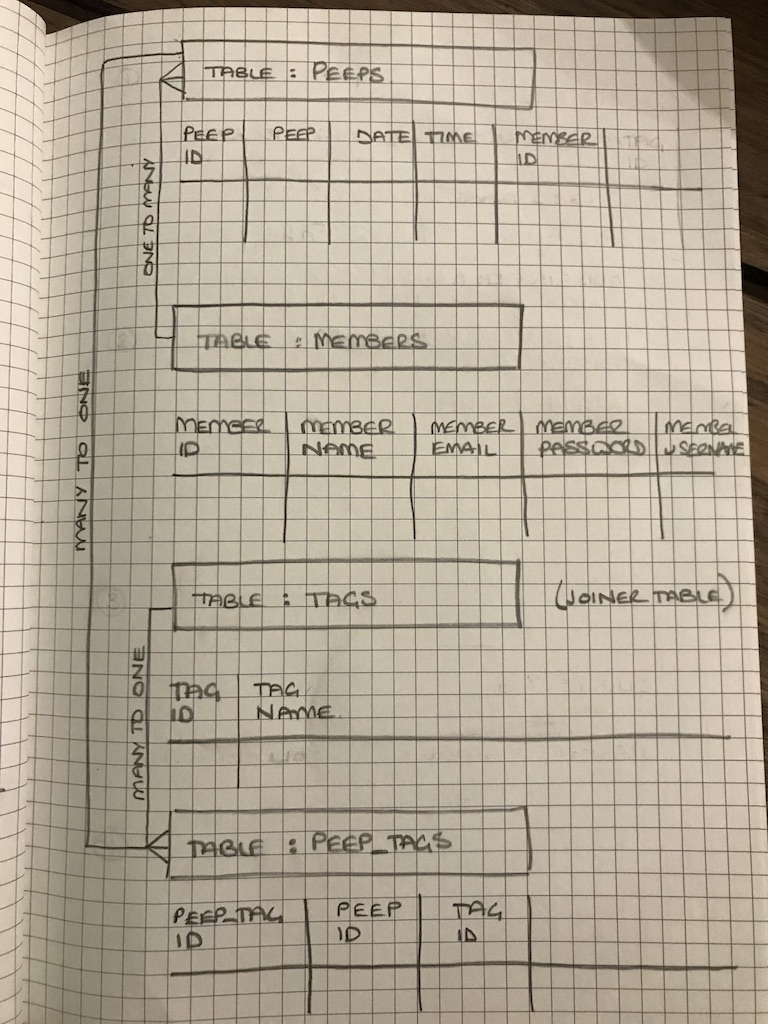 TABLE : PEEPS
PEEP ID PEEP DATE TIME MEMBER ID
ONE TO MANY
TABLE : MEMBERS
MANY TO ONE
MEMBER ID MEMBER NAME MEMBER EMAIL MEMBER PASSWORD MEMBE USERNAME
TABLE : TAGS (JOINER TABLE)
MANY TO ONE
TAG ID TAG NAME
TABLE : PEEP_TAGS
PEEP_TAG ID PEEP ID TAG ID